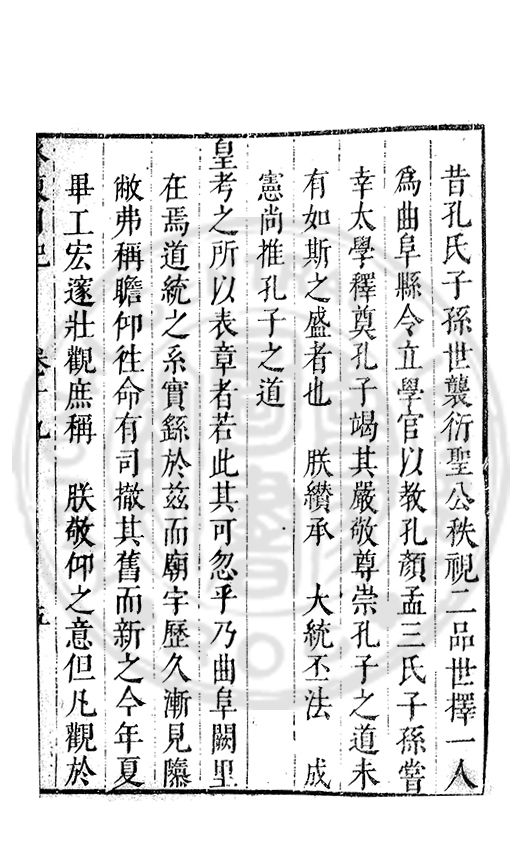 昔孔氏子孫世襲衍聖公秩視二品世擇一人
爲曲阜縣令立學官以教孔顏孟三氏子孫嘗
幸太學釋奠孔子竭其嚴敬尊崇孔子之道未
有如斯之盛者也　朕纘承　大統丕法　成
憲尚推孔子之道
皇考之所以表章者若此其可忽乎乃曲阜闕里
在焉道統之系實繇於兹而廟宇歷久漸見隳
敝弗稱瞻仰徃命有司撤其舊而新之今年夏
畢工宏邃壯觀庶稱　朕敬仰之意但凡觀於
卷十九